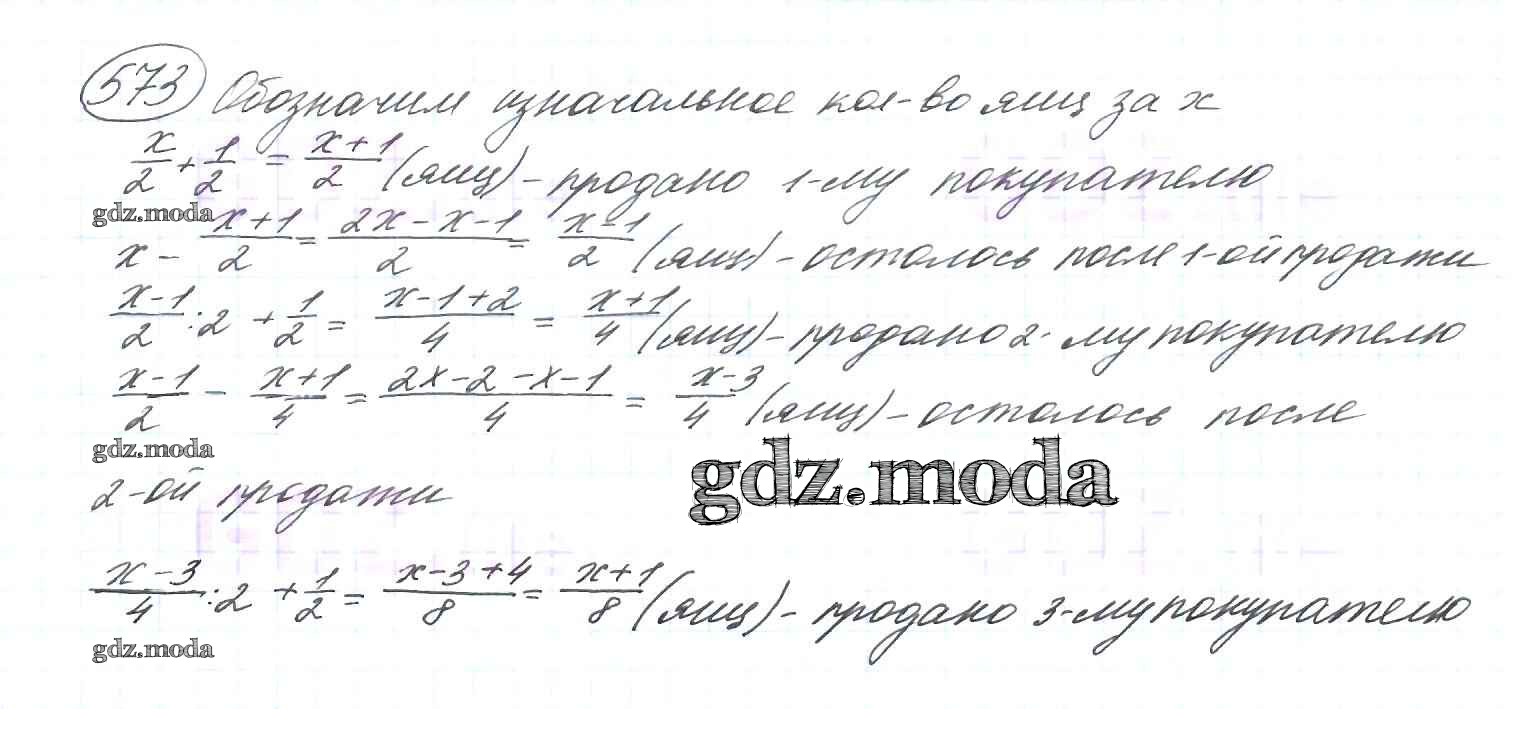 573 Обозначим изначальное кол-во яиц за x
x/2 + 1/2 = (x+1)/2 (яиц) - продано 1-му покупателю
gdz.moda
x - (x+1)/2 = (2x-x-1)/2 = (x-1)/2 (яиц) - осталось после 1-ой продажи
(x-1)/2 : 2 + 1/2 = (x-1+2)/4 = (x+1)/4 (яиц) - продано 2-му покупателю
(x-1)/2 - (x+1)/4 = (2x-2-x-1)/4 = (x-3)/4 (яиц) - осталось после
gdz.moda
gdz.moda
2-ой продажи
(x-3)/4 : 2 + 1/2 = (x-3+4)/8 = (x+1)/8 (яиц) - продано 3-му покупателю
gdz.moda